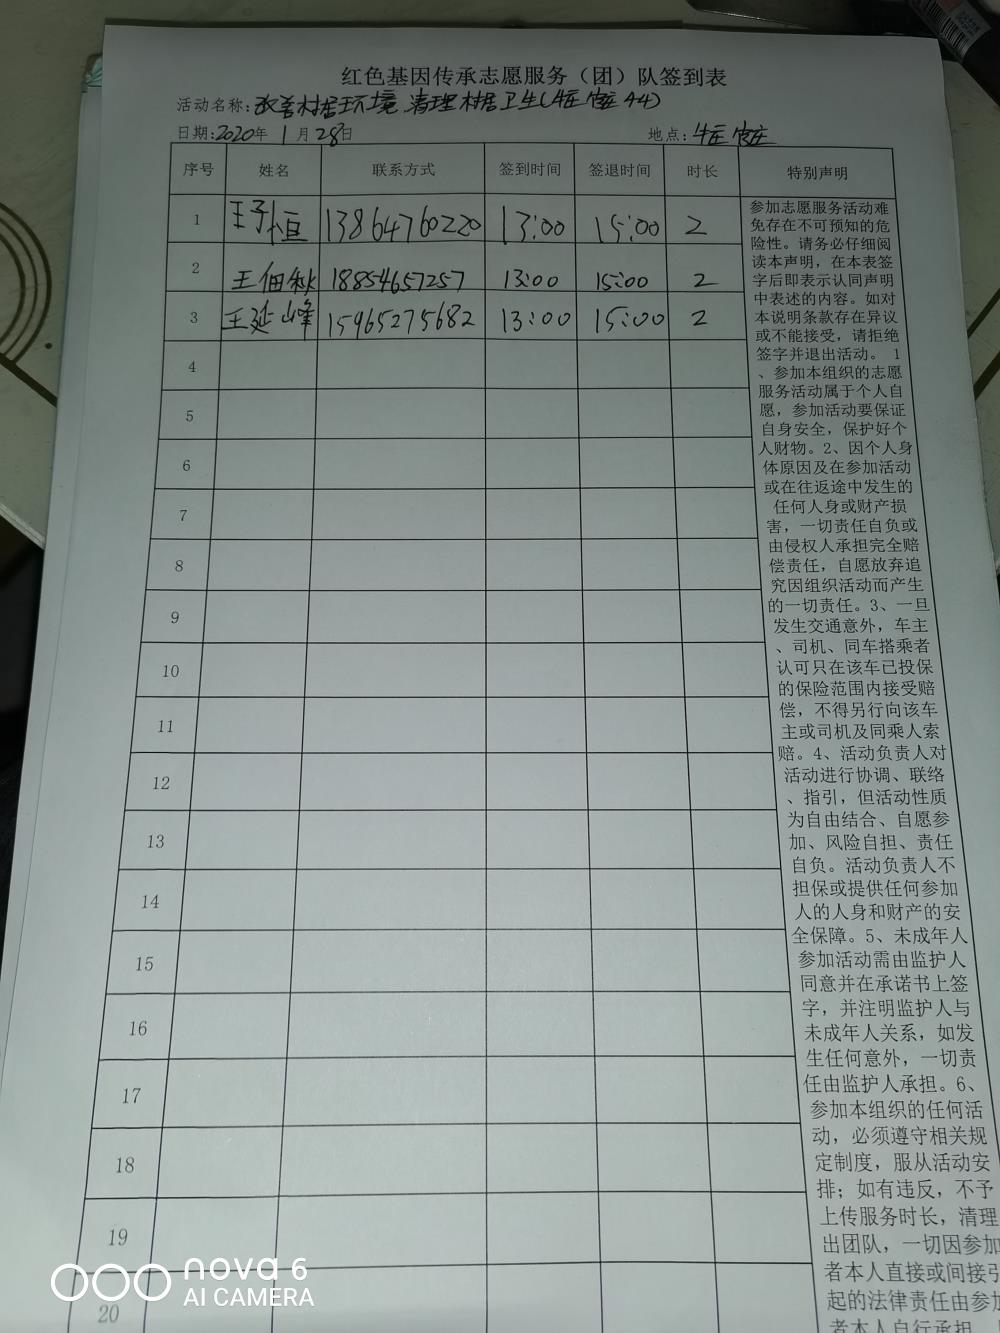 红色基因传承志愿服务（团）队签到表
活动名称：改善村居环境 清理村居卫生
日期：2020年 1 月 28日 地点：
序号 姓名 联系方式 签到时间 签退时间 时长 特别声明
1 王子恒 13864760220 13:00 15:00 2
2 王佃秋 18854657257 13:00 15:00 2
3 王延峰 15965275682 13:00 15:00 2
4
5
6
7
8
9
10
11
12
13
14
15
16
17
18
19
20
参加志愿服务活动难
免存在不可预知的危
险性。请务必仔细阅
读本声明，在本表签
字后即表示认同声明
中表述的内容。如对
本说明条款存在异议
或不能接受，请拒绝
签字并退出活动。 1
、参加本组织的志愿
服务活动属于个人自
愿，参加活动要保证
自身安全，保护好个
人财物。2、因个人身
体原因及在参加活动
或在往返途中发生的
任何人身或财产损
害，一切责任自负或
由侵权人承担完全赔
偿责任，自愿放弃追
究因组织活动而产生
的一切责任。3、一旦
发生交通意外，车主
、司机、同车搭乘者
认可只在该车已投保
的保险范围内接受赔
偿，不得另行向该车
主或司机及同乘人索
赔。4、活动负责人对
活动进行协调、联络
、指引，但活动性质
为自由结合、自愿参
加、风险自担、责任
自负。活动负责人不
担保或提供任何参加
人的人身和财产的安
全保障。5、未成年人
参加活动需由监护人
同意并在承诺书上签
字，并注明监护人与
未成年人关系，如发
生任何意外，一切责
任由监护人承担。6、
参加本组织的任何活
动，必须遵守相关规
定制度，服从活动安
排；如有违反，不予
上传服务时长，清理
出团队，一切因参加
者本人直接或间接引
起的法律责任由参加
者本人自行承担
nova 6
AI CAMERA